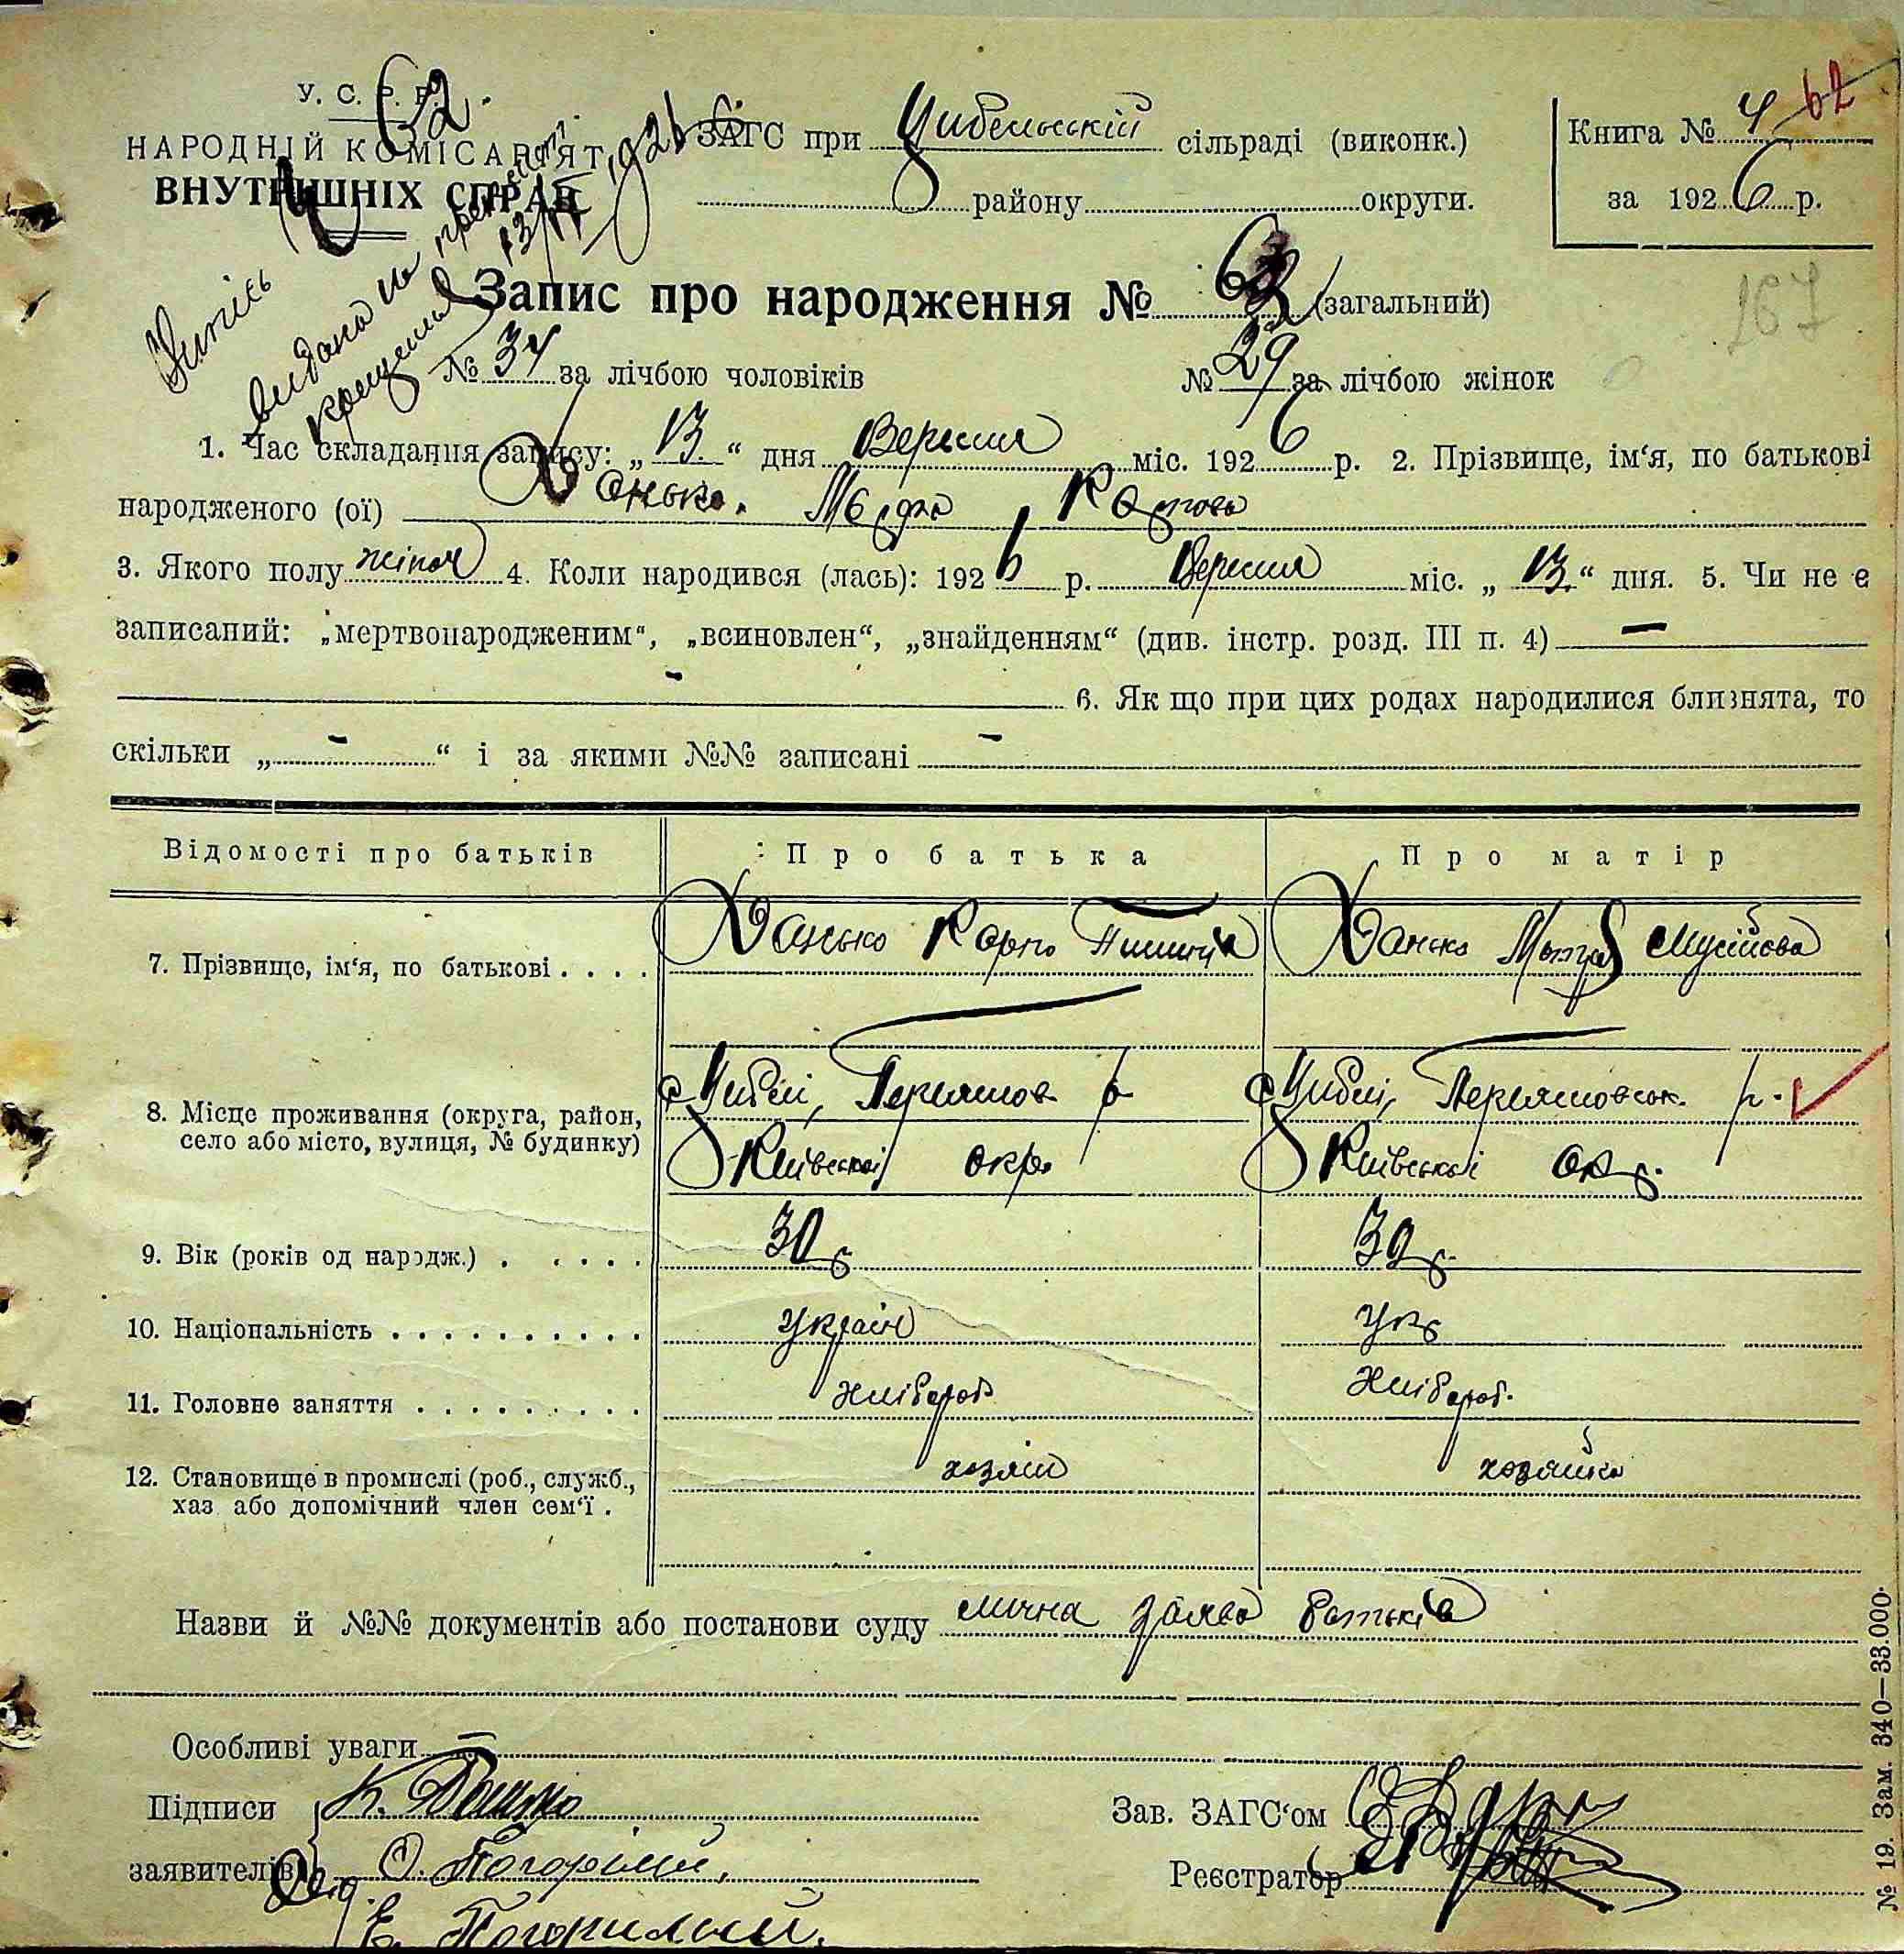 У. С. Р. Р.
62
62
НАРОДНІЙ КОМІСАРІЯТ
ВНУТРІШНІХ СПРАВ
ЗАГС при Цибельській сільраді (виконк.)
району округи.
Книга № 4
за 1926 р.
167
Випись
видана на
хрещення 13/IX 1926 р.
Запис про народження № (загальний)
№ 34 за лічбою чоловіків № 29 за лічбою жінок
1. Час складання запису: „13“ дня Вересня міс. 1926 р. 2. Прізвище, ім‘я, по батькові
народженого (ої) Ханько. Карпова
3. Якого полу жіноч 4. Коли народився (лась): 1926 р. Вересня міс. „13“ дня. 5. Чи не є
записаний: „мертвонародженим“, „всиновлен“, „знайденням“ (див. інстр. розд. III п. 4) —
- 6. Як що при цих родах народилися близнята, то
скільки „-“ і за якими №№ записані -
Відомості про батьків Про батька Про матір
7. Прізвище, ім‘я, по батькові . . . . Ханько Карпо Ханько Мусійова
8. Місце проживання (округа, район,
село або місто, вулиця, № будинку)
с Циблі, Переяслов р
Київської окр.
с Циблі, Переясловськ. р.
Київської окр.
9. Вік (років од народж.) . . . . . 30 р 30 р.
10. Національність . . . . . . . . . . Україн Укр
11. Головне заняття . . . . . . . . . Хлібороб Хлібороб.
12. Становище в промислі (роб., служб.,
хаз або допомічний член сем‘ї .
хозяїн хозяйка
Назви й №№ документів або постанови суду лична заява батьків
Особливі уваги —
Підписи К.
заявителів О. Погоріли,
Е. Погорилый.
Зав. ЗАГС‘ом
Реєстратор
№ 19. Зам. 340—33.000.